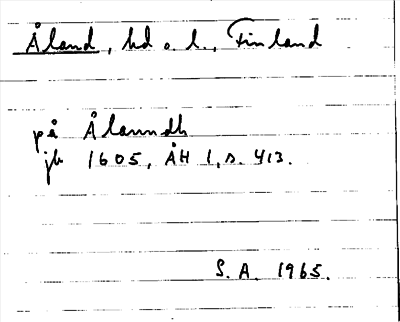 Åland, hd o. l., Finland
på Ålanndh
jb 1605, ÅH 1, s. 413.
S. A. 1965.